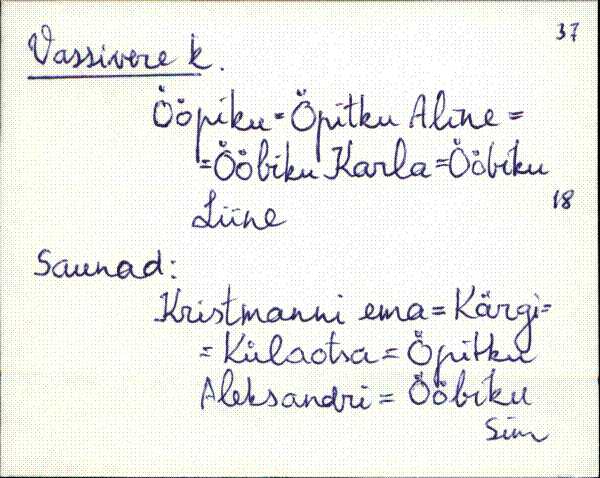 37
Vassivere k.
Ööpiku = Öpitku Aline =
= Ööbiku Karla = Ööbiku
18
Liine
Saunad:
Kristmanni ema = Kärgi =
= Külaotsa = Öpitku
Aleksandri = Ööbiku
Sim